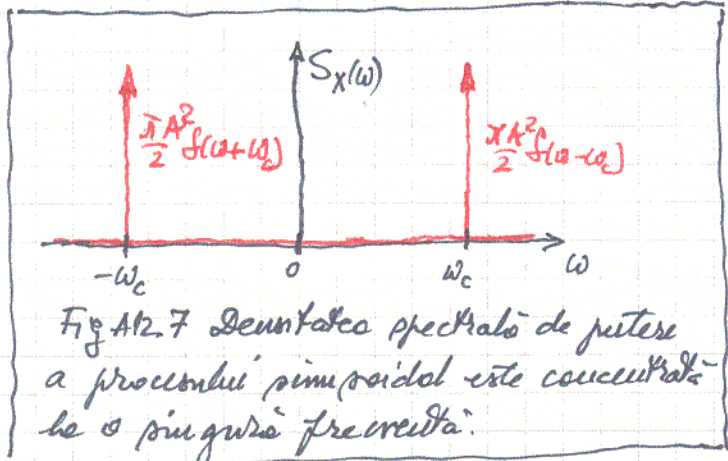 S_X(ω)
πA²/2 δ(ω+ω_c)
πA²/2 δ(ω-ω_c)
-ω_c 0 ω_c ω
Fig A12.7 Densitatea spectrală de putere
a procesului sinusoidal este concentrată
pe o singură frecvență.